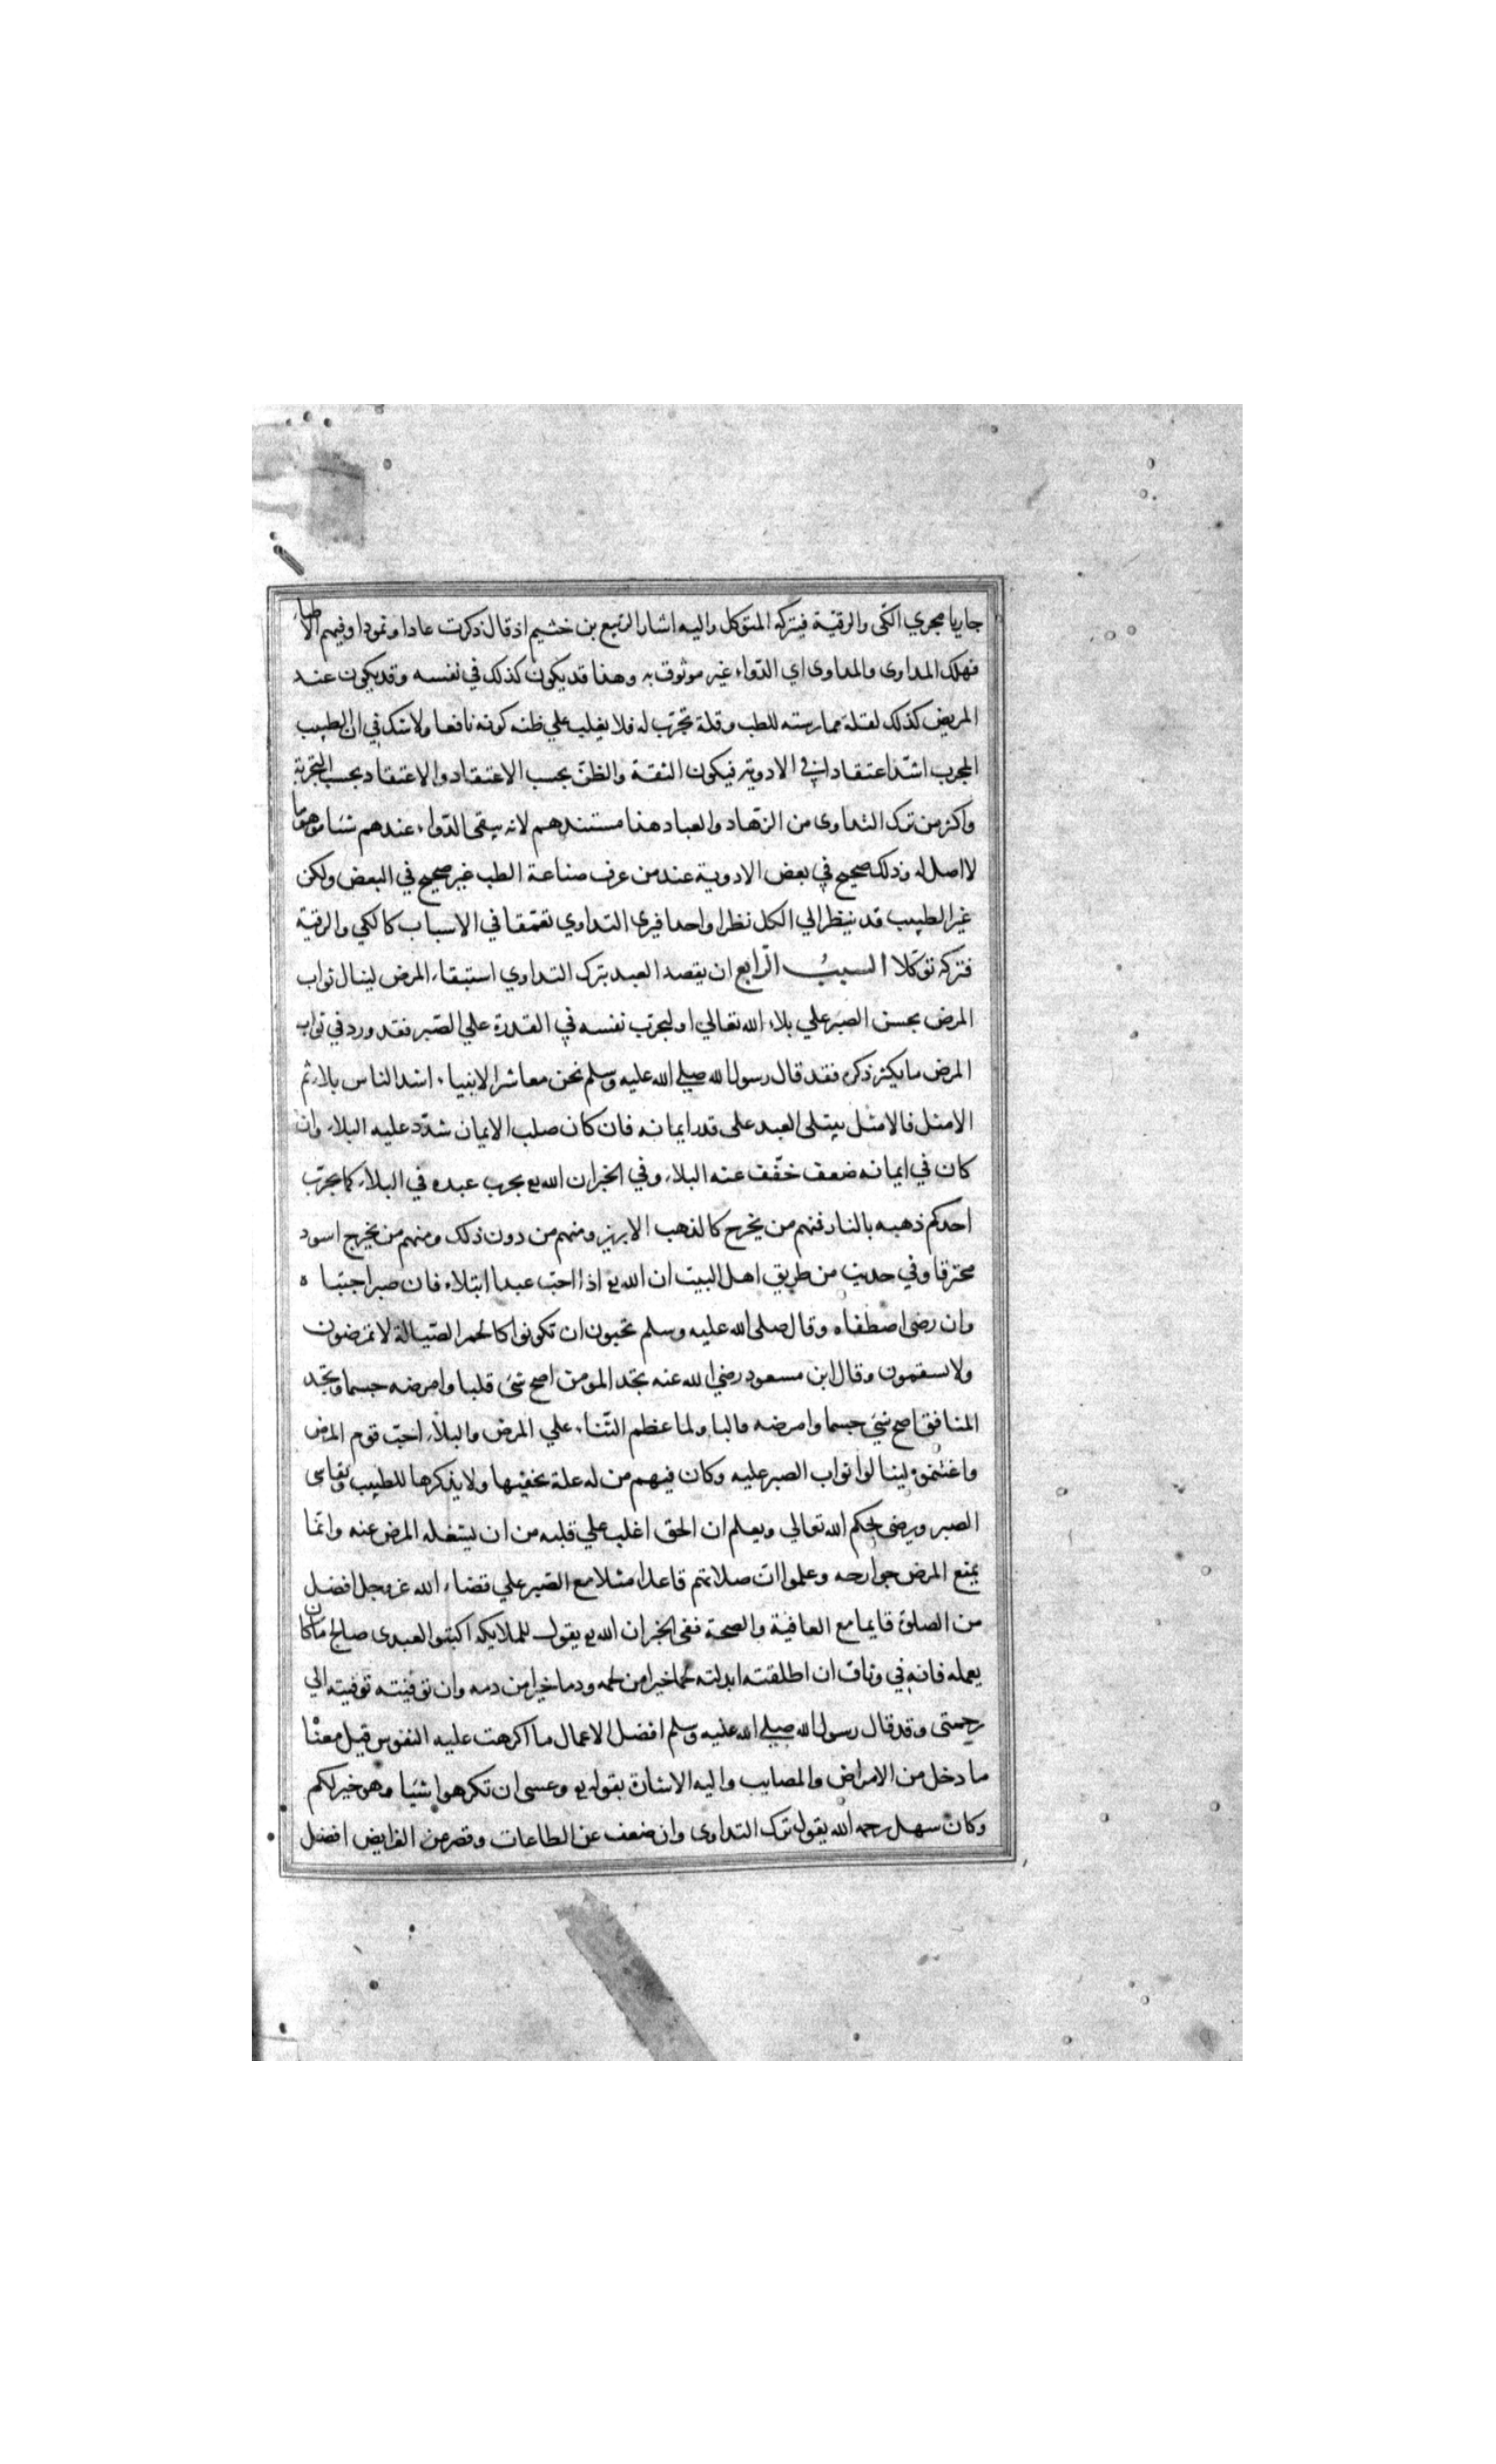 جاريا مجري الكّى والرقيّة فيتركه المتوكل واليه اشار الربيع بن خثيم اذ قال ذكرت عادا وثمودا وفيهم الاطبا
فهلك المداوى والمداوى اي الدّواء غير موثوق به وهذا قد يكون كذلك في نفسه وقد يكون عند
المريض كذلك لقلة ممارسته للطب وقلة تجرّب له فلا يغلب علي ظنه كونه نافعا ولا شك في ان الطبيب
المجرب اشدّ اعتقادا في الادوية فيكون الثقة والظنّ بحسب الاعتقاد والاعتقاد بحسب التجربة
واكثر من ترك التداوى من الزهّاد والعباد هذا مستندهم لانه يبقى الدّواء عندهم شيئا موهوما
لا اصل له وذلك صحيح في بعض الادوية عند من عرف صناعة الطب غير صحيح في البعض ولكن
غير الطبيب قد ينظر الي الكل نظرا واحدا فيرى التداوي تعمّقا في الاسباب كالكي والرقيّة
فتركه توكّلا السببُ الرّابع ان يقصد العبد بترك التداوي استبقاء المرض لينال ثواب
المرض بحسن الصبر علي بلاء الله تعالي او ليجرّب نفسه في القدرة علي الصّبر فقد ورد في ثواب
المرض ما يكثر ذكره فقد قال رسول الله صلي الله عليه وسلم نحن معاشر الانبياء اشد الناس بلاء ثم
الامثل فالامثل يبتلى العبد على قدر ايمانه فان كان صلب الايمان شدّد عليه البلاء وان
كان في ايمانه ضعف خفّف عنه البلاء وفي الخبر ان الله يع يجرب عبده في البلاء كما يجرّب
احدكم ذهبه بالنار فمنهم من يخرج كالذهب الابريز ومنهم من دون ذلك ومنهم من يخرج اسود
محترقا وفي حديث من طريق اهل البيت ان الله يع اذا احبّ عبدا ابتلاه فان صبر اجتباه
وان رضى اصطفاه وقال صلى الله عليه وسلم تحبون ان تكونوا كالحمر الصّيالة لا تمرضون
ولا تسقمون وقال ابن مسعود رضي الله عنه تجد المومن اصح شئ قلبا وامرضه جسما وتجد
المنافق اصح شئ جسما وامرضه قالبا ولما عظم الثّناء علي المرض والبلاء احبّ قوم المرض
واغتنموه لينالوا ثواب الصبر عليه وكان فيهم من له علة يخفيها ولا يذكرها للطبيب ويقاسى
الصبر ويرضى لحكم الله تعالي ويعلم ان الحق اغلب علي قلبه من ان يشغله المرض عنه وانّما
يمنع المرض جوارحه وعلموا انّ صلاتهم قاعدا مثلا مع الصّبر علي قضاء الله عز وجل افضل
من الصلوة قايما مع العافية والصحة ففى الخبر ان الله يع يقول للملايكة اكتبوا لعبدى صالح ما كان
يعمله فانه في وثاقى ان اطلقته ابدلته لحما خيرا من لحمه ودما خيرا من دمه وان توفيته توفيته الي
رحمتى وقد قال رسول الله صلي الله عليه وسلم افضل الاعمال ما اكرهت عليه النفوس قيل معناه
ما دخل من الامراض والمصايب واليه الاشارة بقوله يع وعسى ان تكرهوا شيئا وهو خير لكم
وكان سهل رحمه الله يقول ترك التداوى وان ضعف عن الطاعات وقصر من الفرايض افضل